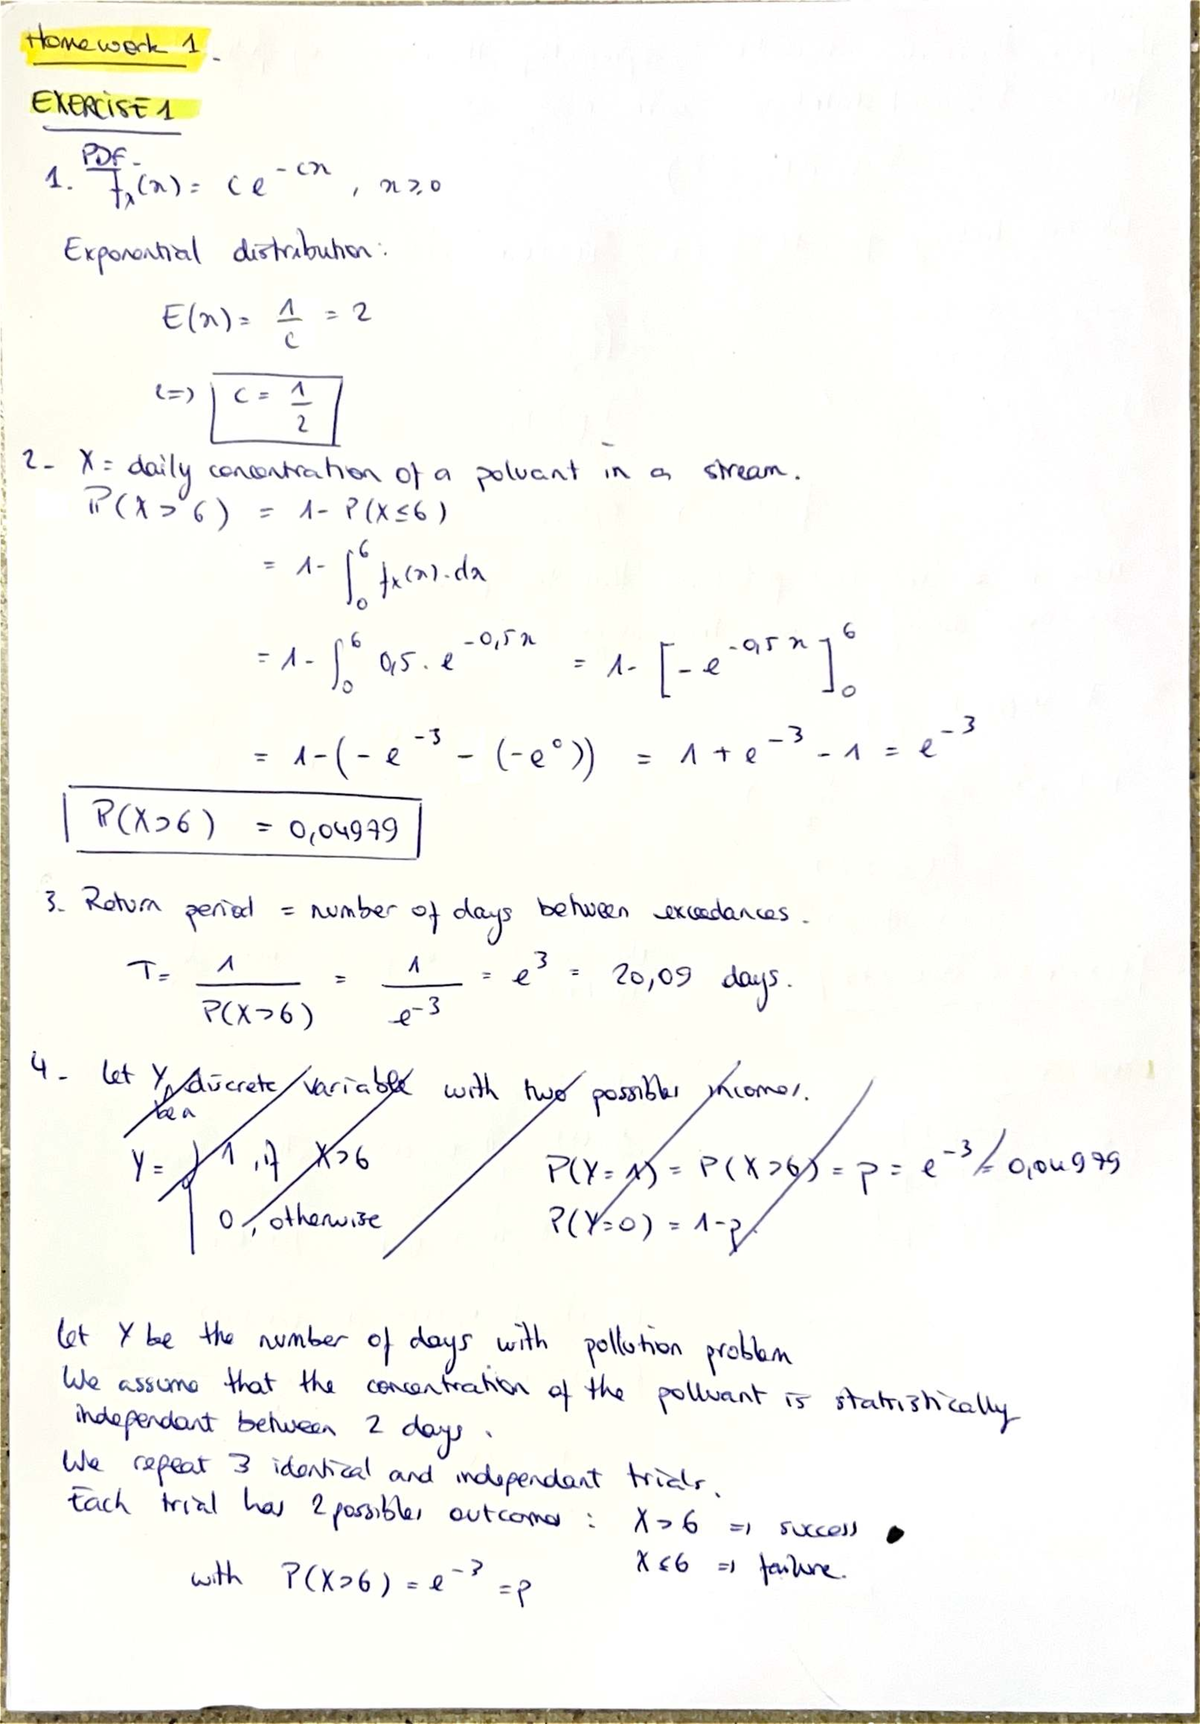 Homework 1.
EXERCISE 1
PDF
1. fx(x) = c e^-cx , x ≥ 0
Exponential distribution:
E(x) = 1/c = 2
(=) c = 1/2
2- X = daily concentration of a poluant in a stream.
P(X > 6) = 1 - P(X ≤ 6)
= 1 - ∫_0^6 fx(x).dx
= 1 - ∫_0^6 0,5. e^-0,5x = 1 - [-e^-0,5x]_0^6
= 1 - (-e^-3 - (-e^0)) = 1 + e^-3 - 1 = e^-3
P(X>6) = 0,04979
3- Return period = number of days between exceedances.
T = 1/P(X>6) = 1/e^-3 = e^3 = 20,09 days.
4- Let Y be a discrete variable with two possibles incomes.
Y = { 1, if X>6 P(Y=1) = P(X>6) = p = e^-3 = 0,04979
0, otherwise P(Y=0) = 1-p.
Let Y be the number of days with pollution problem
We assume that the concentration of the polluant is statistically
independant between 2 days.
We repeat 3 identical and independant trials.
Each trial has 2 possibles outcomes : X > 6 => success
X ≤ 6 => failure.
with P(X>6) = e^-3 = p